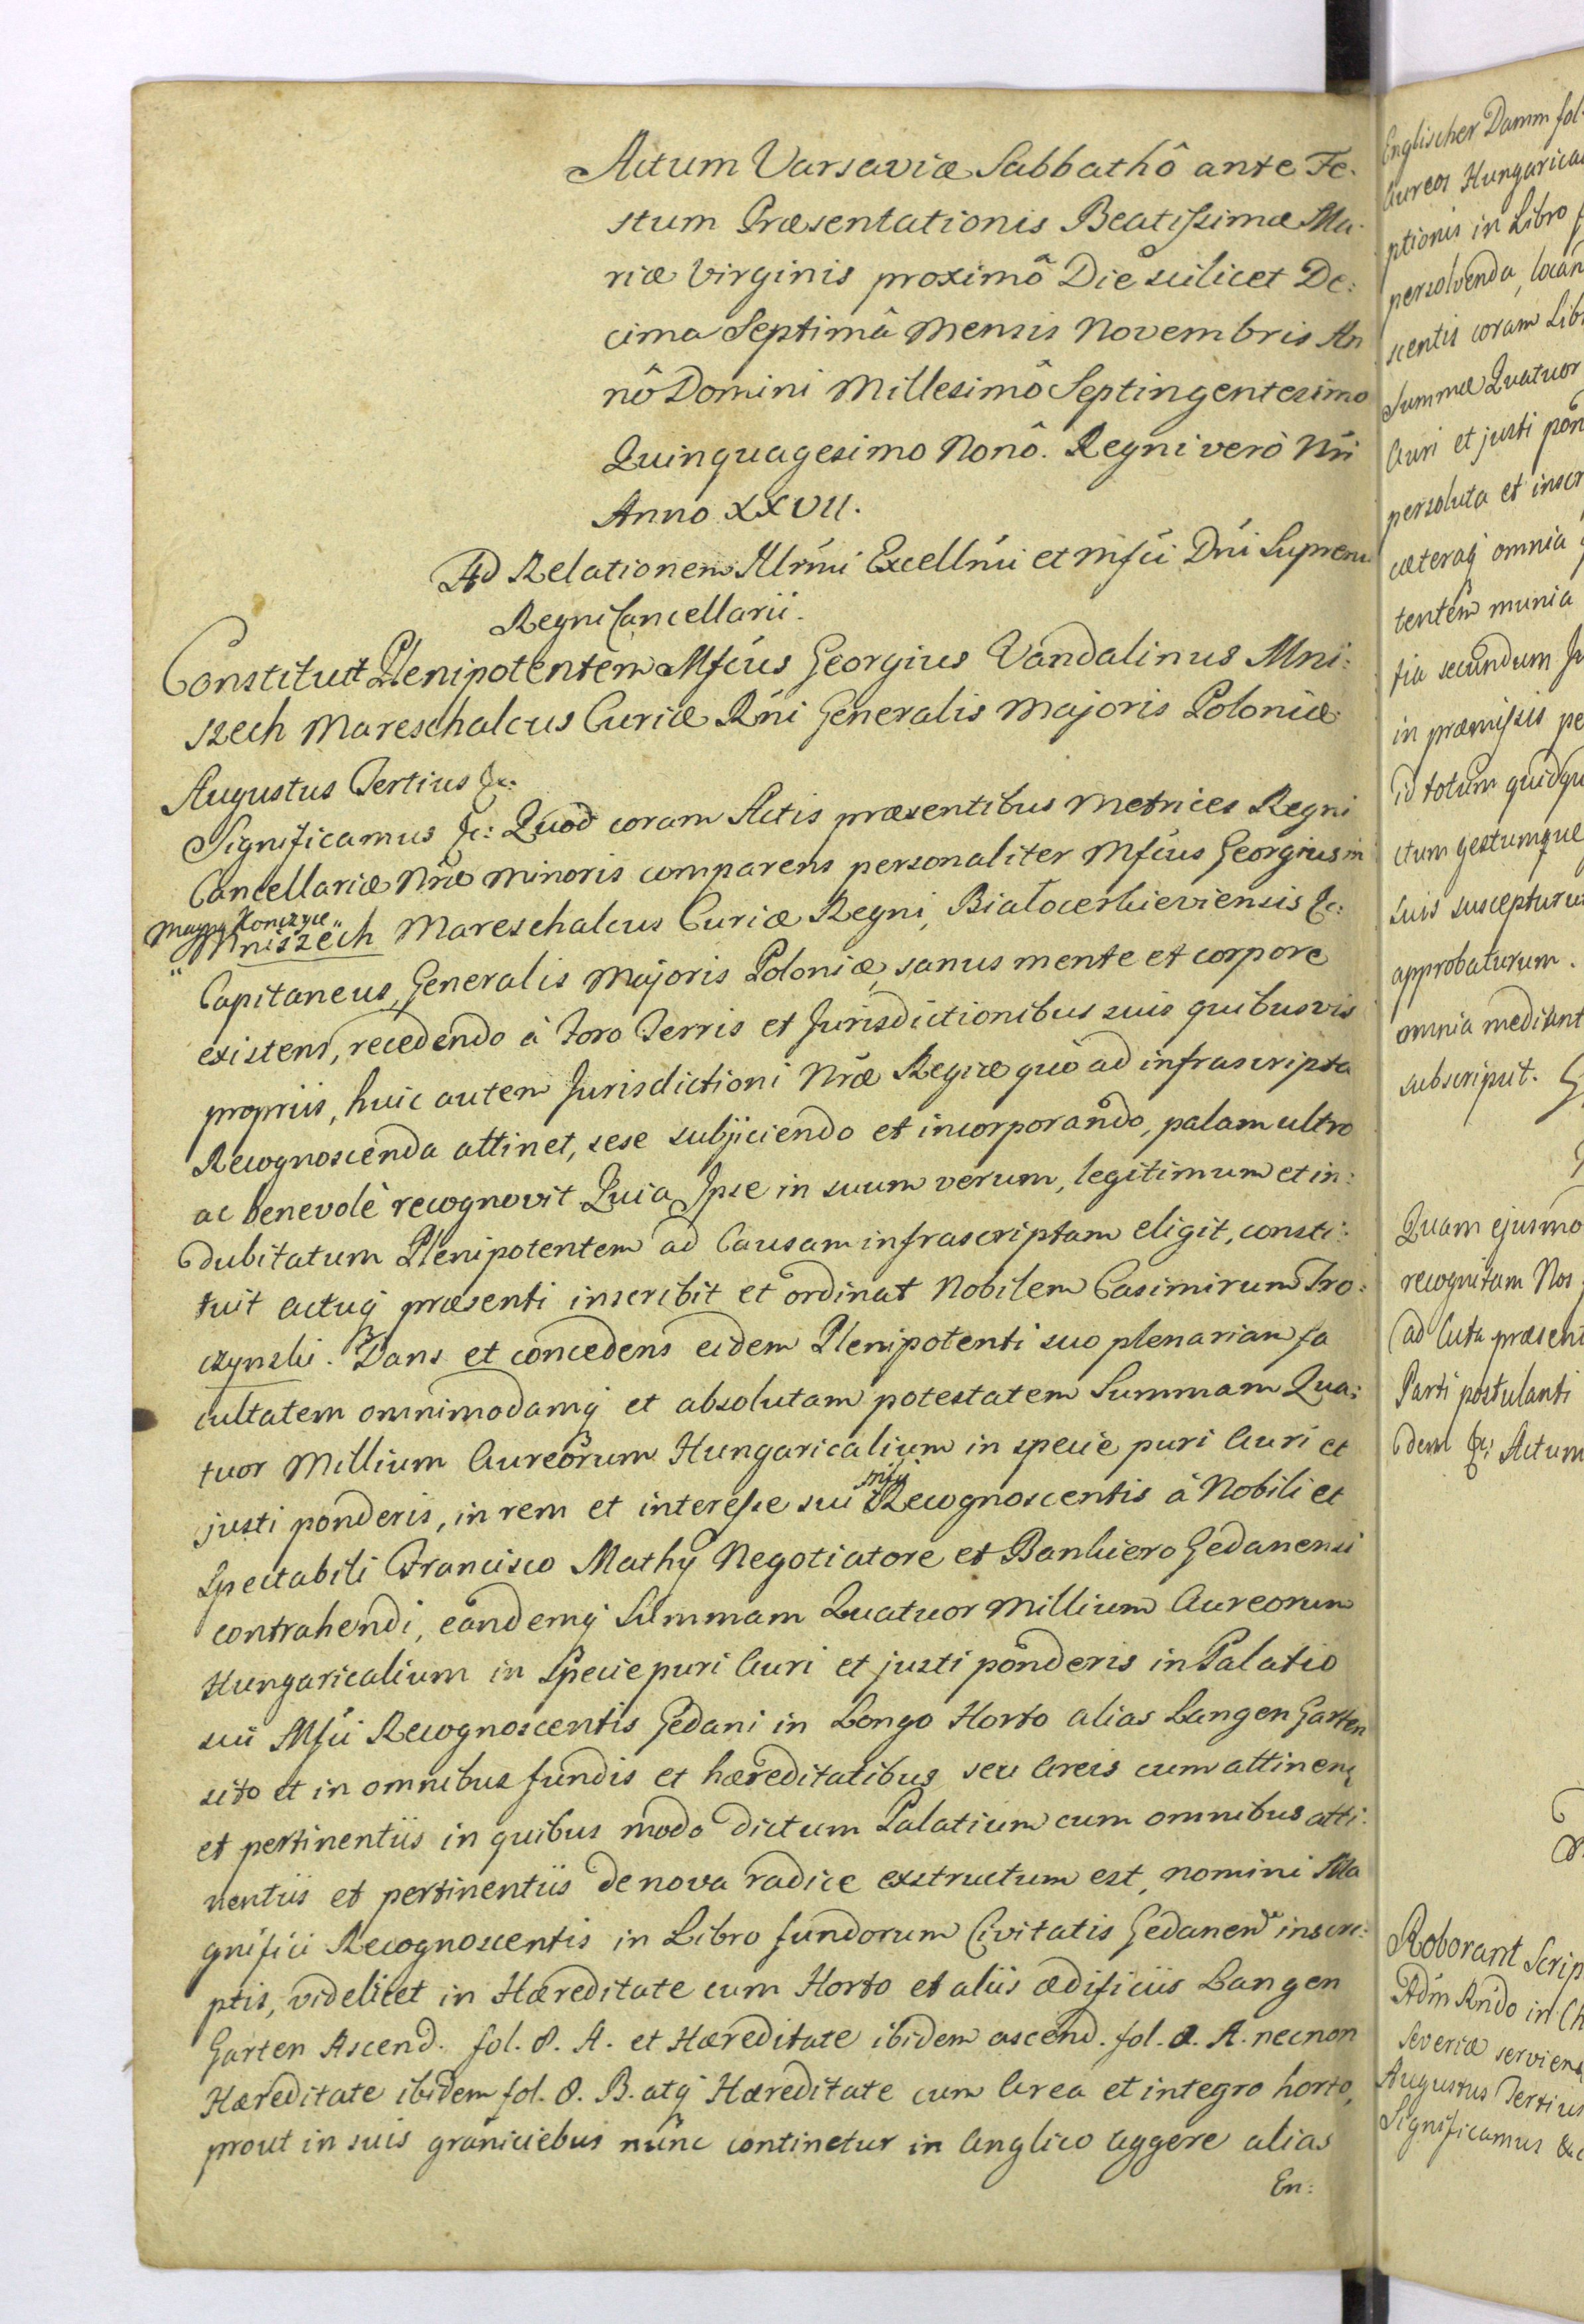 Actum Varsaviæ Sabbathô ante Fe:
stum Præsentationis Beatissimæ Ma:
riæ Virginis proximô Die scilicet De:
cima Septimâ Mensis Novembris An
nô Domini Millesimô Septingentesimo
Quinquagesimo Nonô. Regni verò Nri
Anno XXVII.
Ad Relationem Illrmi Excellmi et Mfci Dni Supremi
Regni Cancellarii.
Constituit Plenipotentem Mfcus Georgius Vandalinus Mni:
szech Mareschalcus Curiæ Rni Generalis Majoris Poloniæ
Augustus Tertius &c:
Significamus &c: Quod coram Actis præsentibus Metrices Regni
Cancellariæ Nræ minoris comparens personaliter Mfcus Georgius in
Magna Konczyce
Mniszech Mareschalcus Curiæ Regni, Białocerkieviensis &c:
Capitaneus, Generalis Majoris Poloniæ, sanus mente et corpore
existens, recedendo à Foro Terris et Jurisdictionibus suis quibusvis
propriis, huic autem Jurisdictioni Nræ Regiæ quò ad infrascripta
Recognoscenda attinet, sese subjiciendo et incorporando, palam ultro
ac benevolè recognovit Quia Ipse in suum verum, legitimum et in:
dubitatum Plenipotentem ad Causam infrascriptam eligit, consti:
tuit actuq præsenti inscribit et ordinat Nobilem Casimirum Tro:
czynski. Dans et concedens eidem Plenipotenti suo plenariam fa
cultatem omnimodamq et absolutam potestatem Summam Qua:
tuor Millium Aureorum Hungaricalium in specie puri Auri et
justi ponderis, in rem et interesse sui Mfci Recognoscentis à Nobili et
Spectabili Francisco Mathy Negotiatore et Bankiero Gedanensi
contrahendi, eandemq Summam Quatuor Millium Aureorum
Hungaricalium in Specie puri Auri et justi ponderis in Palatio
sui Mfci Recognoscentis Gedani in Longo Horto alias Langen Garten
sito et in omnibus fundis et hæreditatibus seu Areis cum attinen
et pertinentiis in quibus modo dictum Palatium cum omnibus atti:
nentiis et pertinentiis de nova radice exstructum est, nomini Ma
gnifici Recognoscentis in Libro fundorum Civitatis Gedanen inscri:
ptis, videlicet in Hæreditate cum Horto et aliis ædificiis Langen
Garten Ascend. fol. 8. A. et Hæreditate ibidem ascend. fol. 8. A. necnon
Hæreditate ibidem fol. 8. B. atq Hæreditate cum Area et integro horto,
prout in suis graniciebus nunc continetur in Anglico Aggere alias
En:
Englischer Damm fol.
Aureos Hungarica
ptionis in Libro
persolvenda, locan
scentis coram Lib
Summæ Quatuor
Auri et justi pon
persoluta et inscr
cæteraq omnia
tentem munia
tia secundum Ju
in præmissis pe
id totum quidqu
ctum gestumque
suis suscepturu
approbaturum.
omnia medi
subscripsit.
Quam ejusmo
recognitam Nos
ad Acta præsent
Parti postulanti
dem &c: Actum
Roborant Scrip
Adm Rndo in Ch
Severiæ serviens
Augustus Tertius
Significamus &c